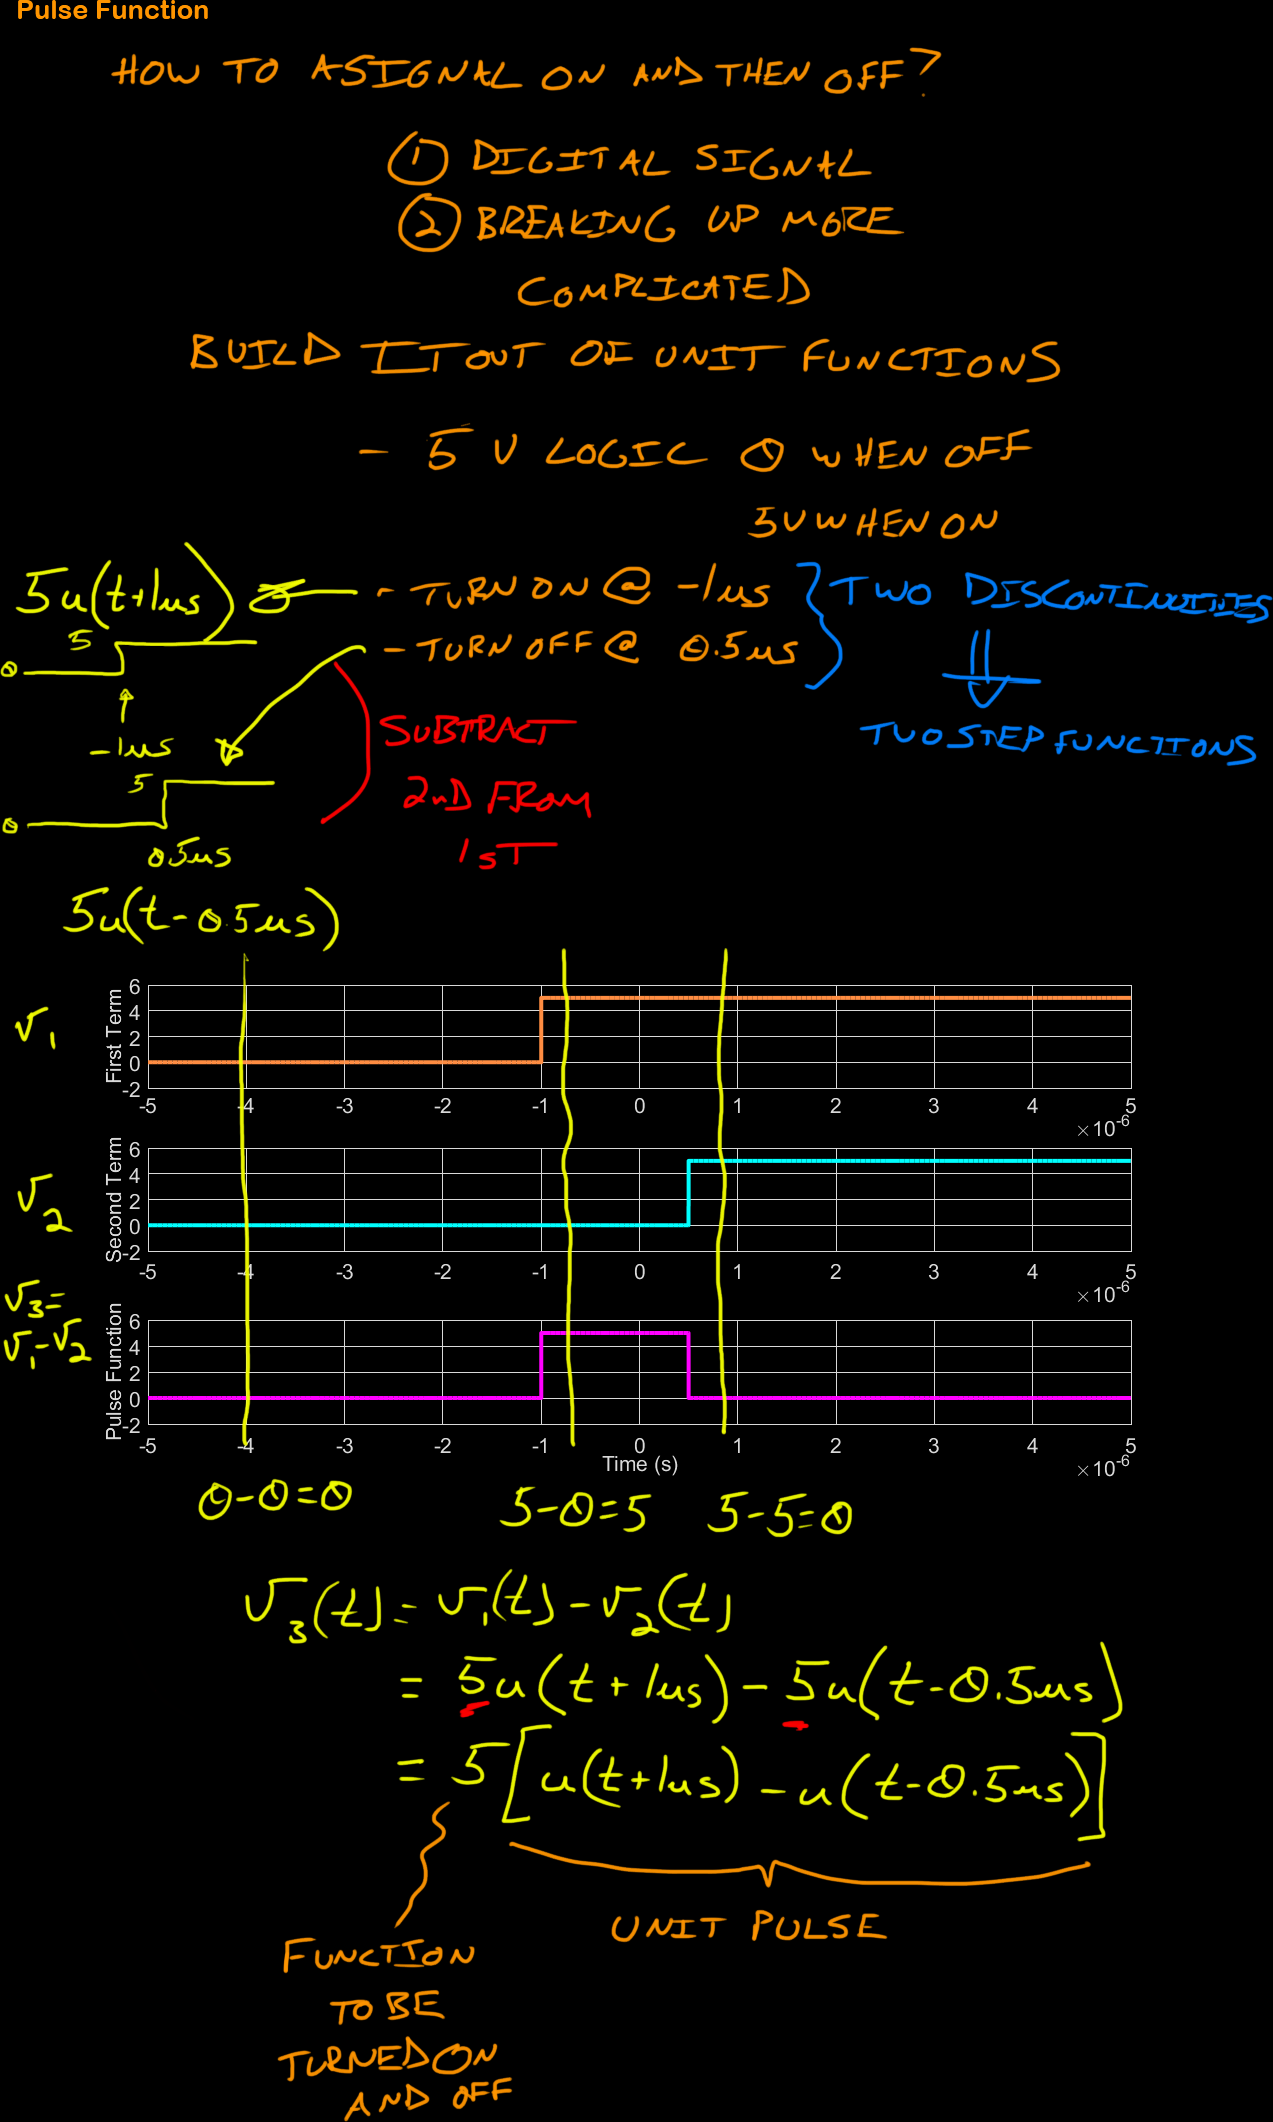 Pulse Function
HOW TO A SIGNAL ON AND THEN OFF?
① DIGITAL SIGNAL
② BREAKING UP MORE
COMPLICATED
BUILD IT OUT OF UNIT FUNCTIONS
- 5 V LOGIC 0 WHEN OFF
5V WHEN ON
5u(t+1us)
- TURN ON @ -1us
TWO DISCONTINUITIES
- TURN OFF @ 0.5us
5
0
-1us
SUBTRACT
2ND FROM
1ST
TWO STEP FUNCTIONS
5
0
0.5us
5u(t-0.5us)
v1
First Term
6
4
2
0
-2
-5 -4 -3 -2 -1 0 1 2 3 4 5
×10-6
v2
Second Term
6
4
2
0
-2
-5 -4 -3 -2 -1 0 1 2 3 4 5
×10-6
v3=
v1-v2
Pulse Function
6
4
2
0
-2
-5 -4 -3 -2 -1 0 1 2 3 4 5
Time (s)
×10-6
0-0=0 5-0=5 5-5=0
v3(t)= v1(t)-v2(t)
= 5u(t+1us)-5u(t-0.5us)
= 5[u(t+1us)-u(t-0.5us)]
UNIT PULSE
FUNCTION
TO BE
TURNED ON
AND OFF